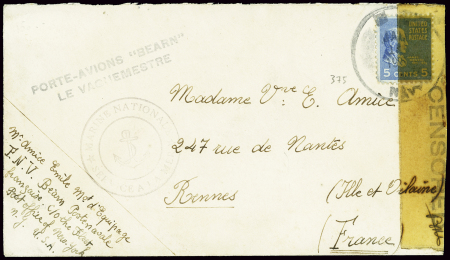 PORTE-AVIONS "BEARN"
LE VAGUEMESTRE
UNITED
STATES
POSTAGE
5 CENTS 5
375
MARINE NATIONALE
Madame Vve E. Amice
247 rue de Nantes
Rennes (Ille et Vilaine)
(France)
Mr Amice Emile Mot d'Equipage
F.N.V. Bearn Patrouille
française
Post office of New York
N.Y. U.S.A.
CENSORE